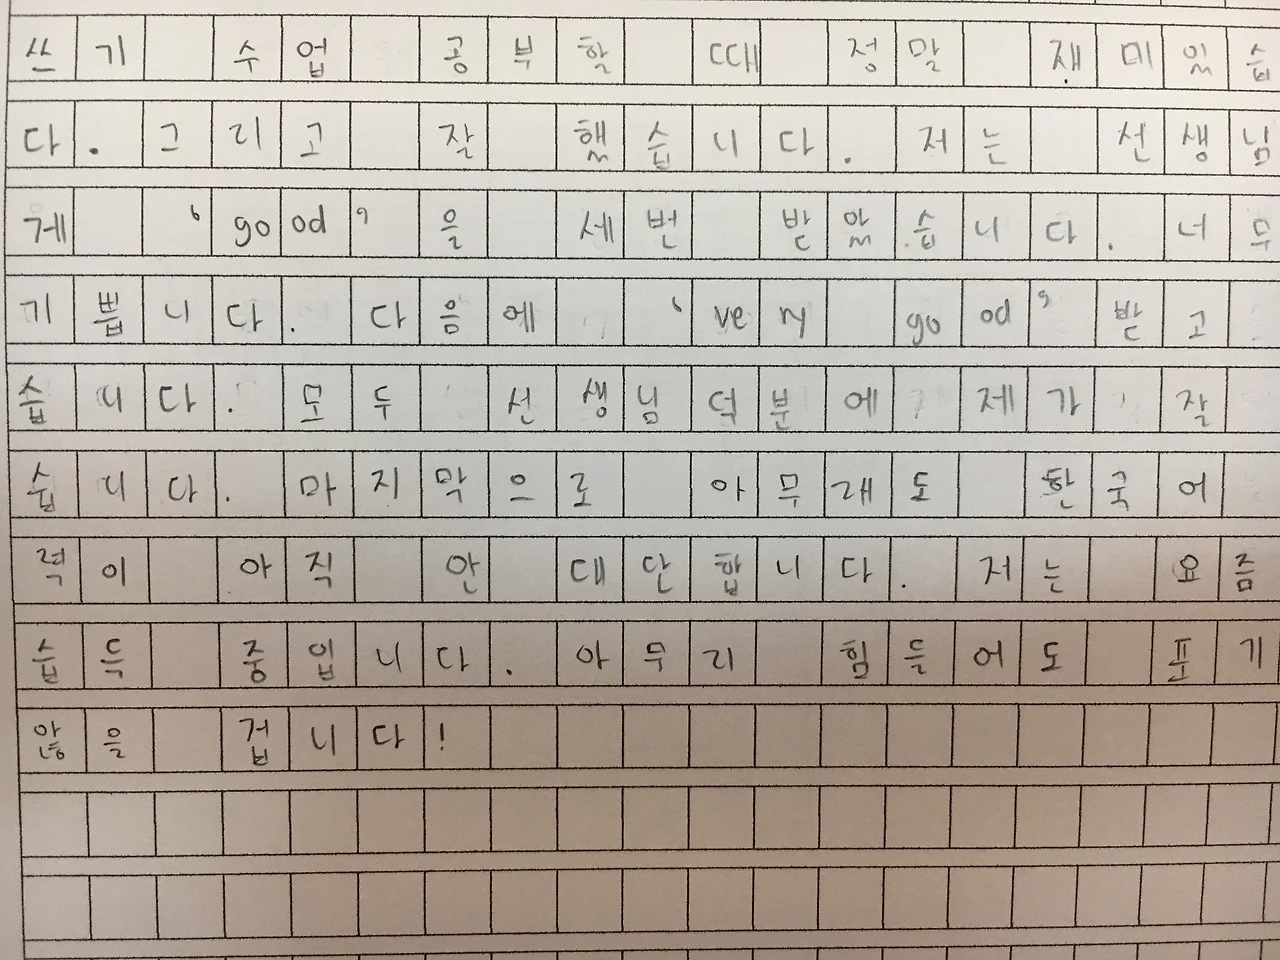 쓰기 수업 공부할 때 정말 재미있습
다. 그리고 잘 했습니다. 저는 선생님
게 ‘good’을 세번 받았습니다. 너무
기쁩니다. 다음에 ‘very good’ 받고
습니다. 모두 선생님 덕분에 제가 잘
습니다. 마지막으로 아무래도 한국어
력이 아직 안 대단합니다. 저는 요즘
습득 중입니다. 아무리 힘들어도 포기
않을 겁니다!